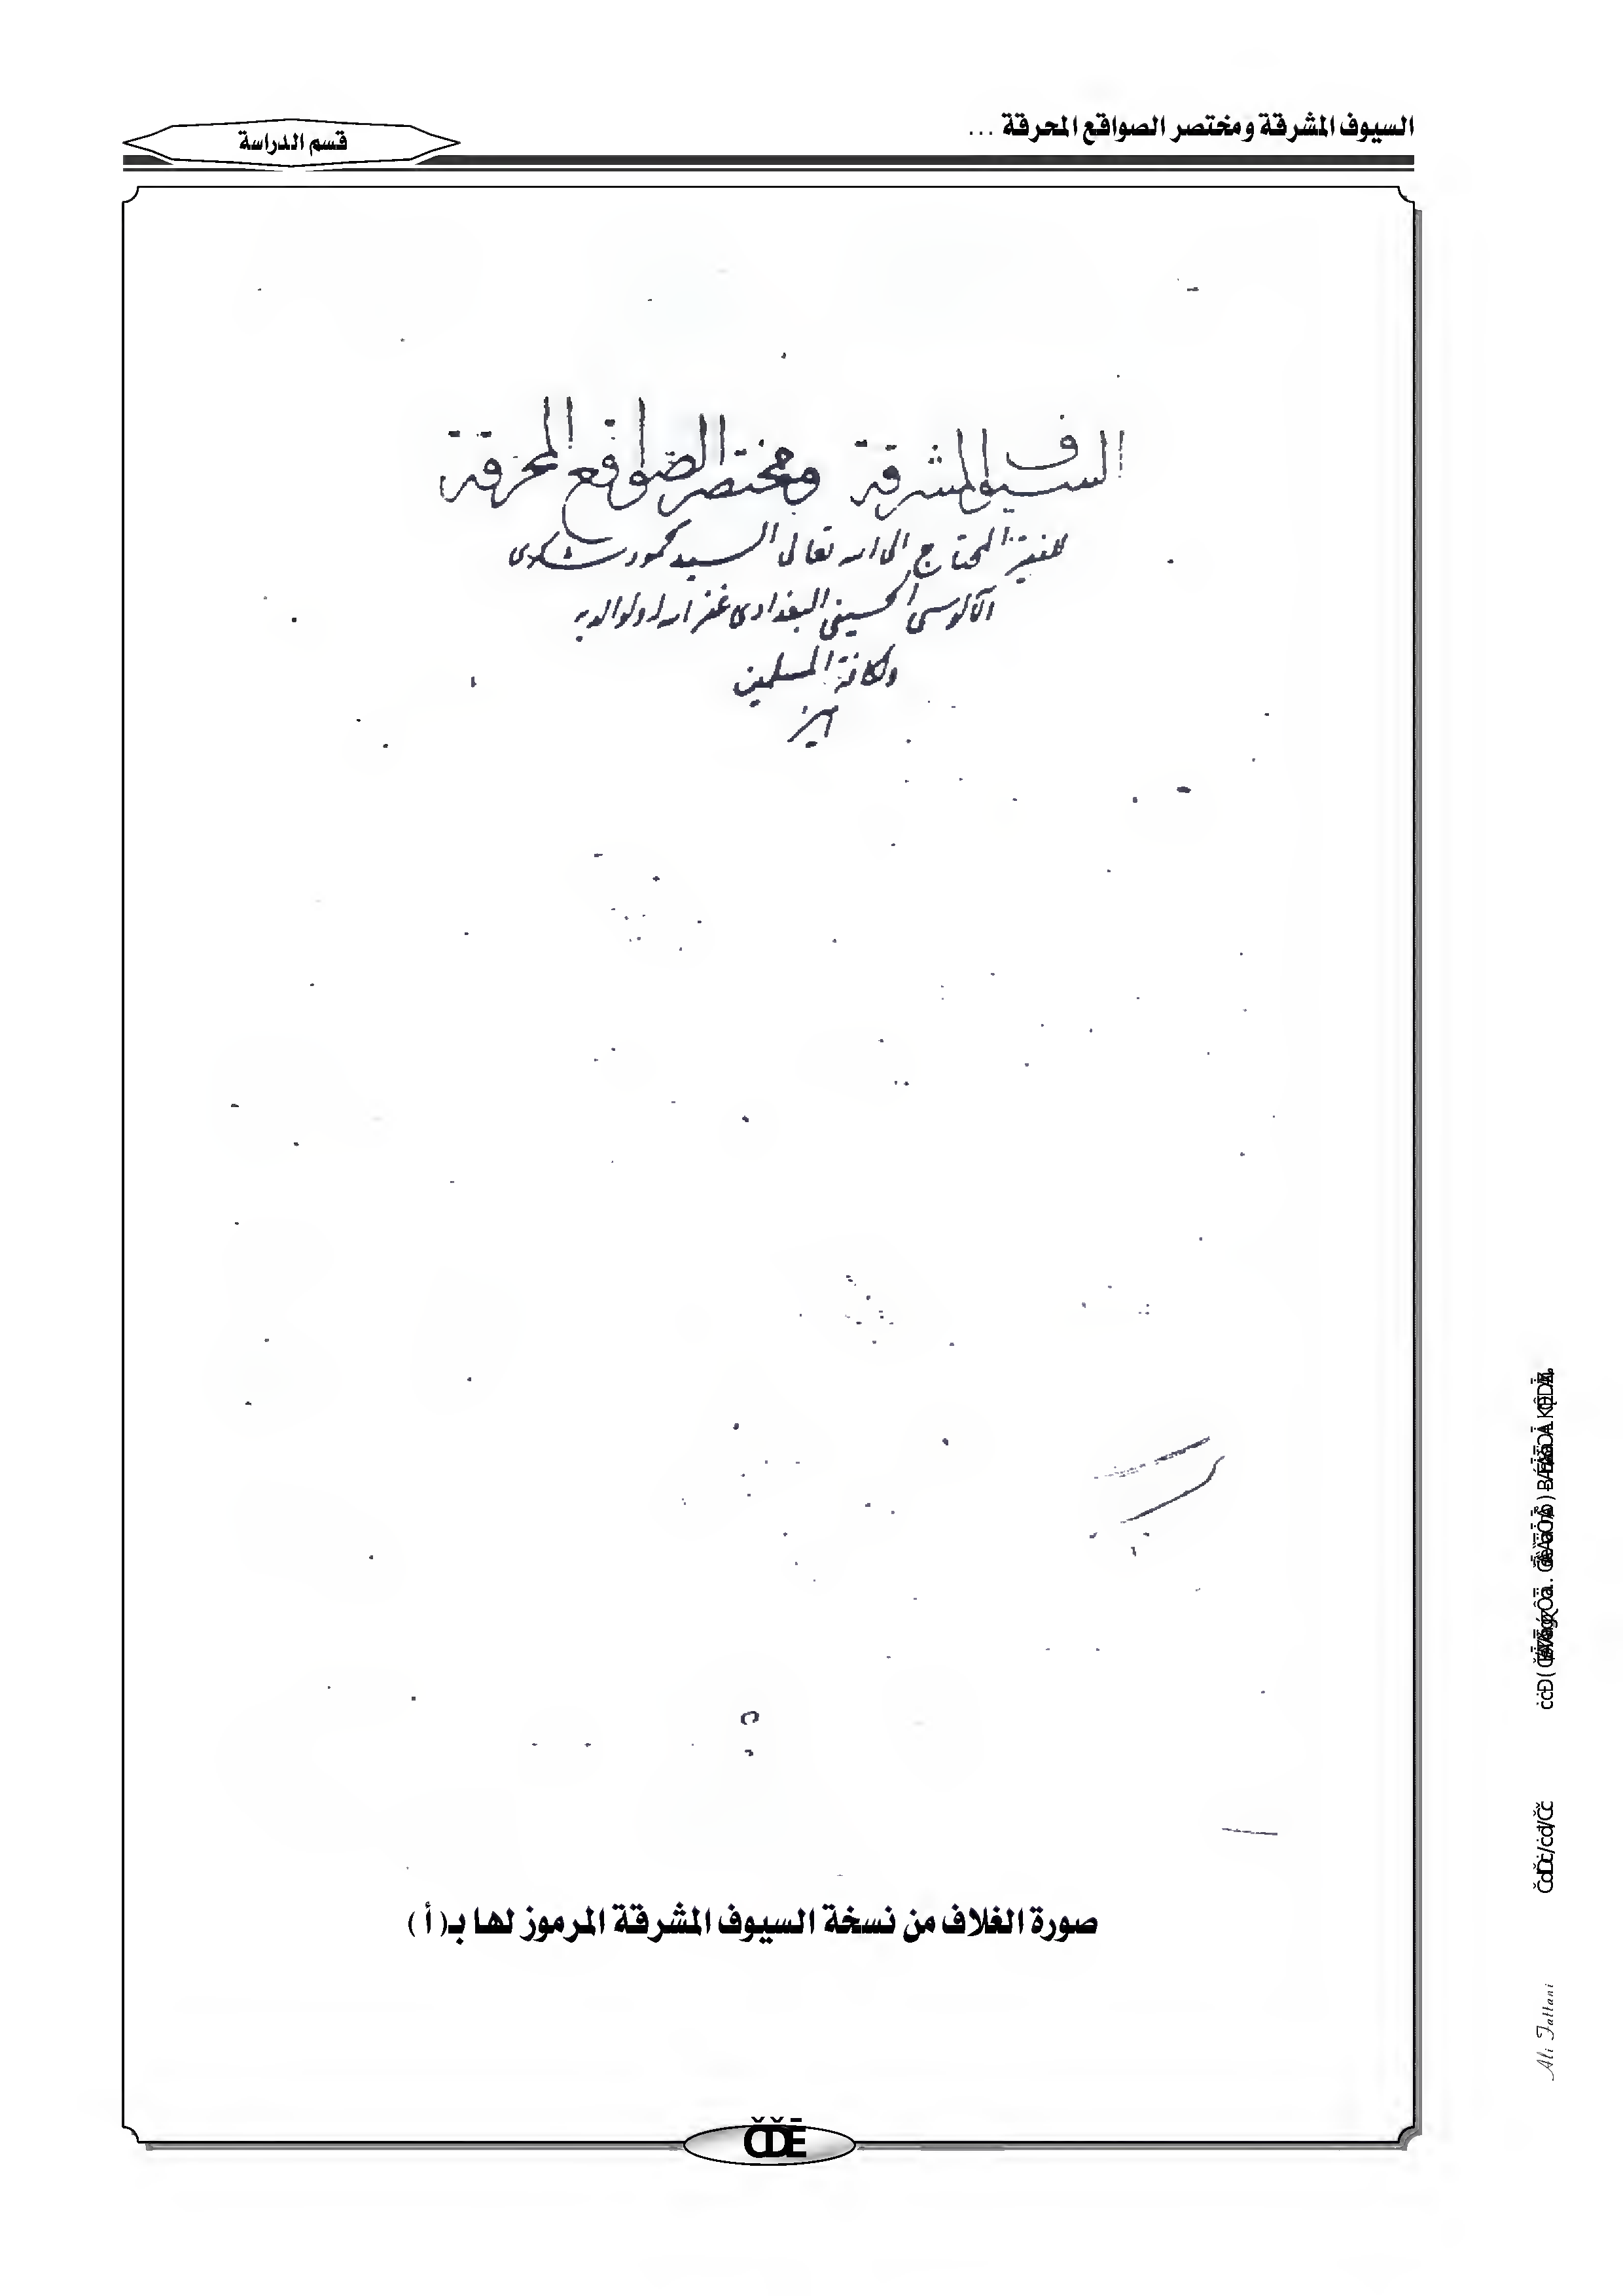 السيوف المشرقة ومختصر الصواقع المحرقة ...
قسم الدراسة
السيوف المشرقة ومختصر الصواقع المحرقة
للفقير المحتاج الى الله تعالى السيد محمود شكرى
الآلوسى الحسينى البغدادى غفر الله له ولوالديه
ولكافة المسلمين
آمين
صورة الغلاف من نسخة السيوف المشرقة المرموز لها بـ( أ )
Ali Fattani